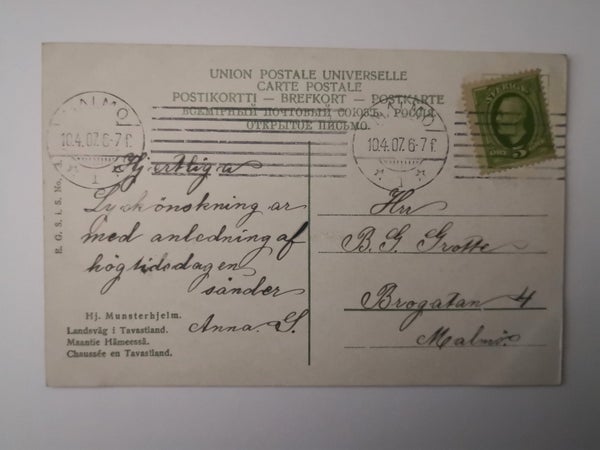 UNION POSTALE UNIVERSELLE
CARTE POSTALE
POSTIKORTTI — BREFKORT — POSTKARTE
ВСЕМІРНЫЙ ПОЧТОВЫЙ СОЮЗЪ, РОССІЯ
ОТКРЫТОЕ ПИСЬМО.
MALMÖ
10.4.07. 6-7 f.
1
MALMÖ
10.4.07. 6-7 f.
1
SVERIGE
5
Hjertliga
Lyckönskningar
med anledning af
högtidsdagen
sänder
Anna. S.
Hj. Munsterhjelm.
Landsväg i Tavastland.
Maantie Hämeessä.
Chaussée en Tavastland.
Hrr
B. G. Grotte
Brogatan 4
Malmö.